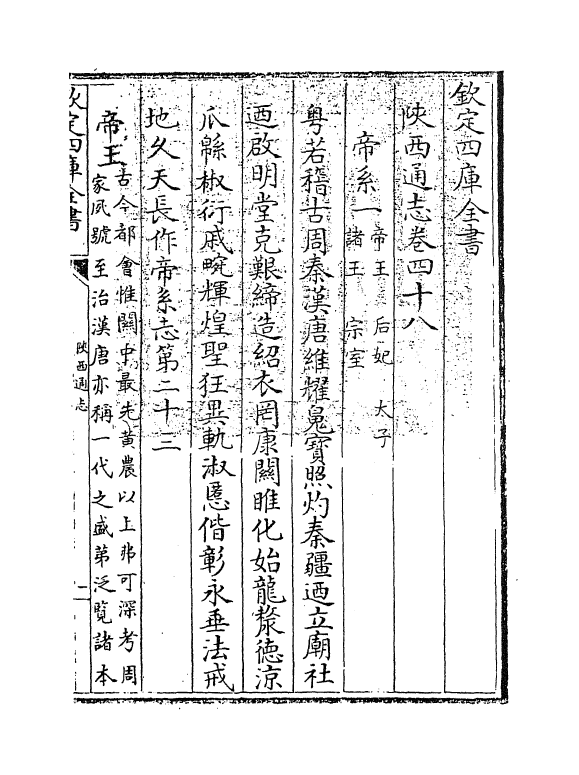 欽定四庫全書
陝西通志卷四十八
帝系一 帝王 后妃 太子
諸王 宗室
粤若稽古周秦漢唐維耀鳬寳照灼秦疆迺立廟社
迺啟明堂克艱締造紹衣罔康關睢化始龍漦徳涼
瓜緜椒衍戚畹輝煌聖狂異軌淑慝偕彰永垂法戒
地久天長作帝系志第二十三
帝王 古今都會惟關中最先黄農以上非可深考周
家夙號至治漢唐亦稱一代之盛第泛覽諸本
欽定四庫全書
陜西通志
一